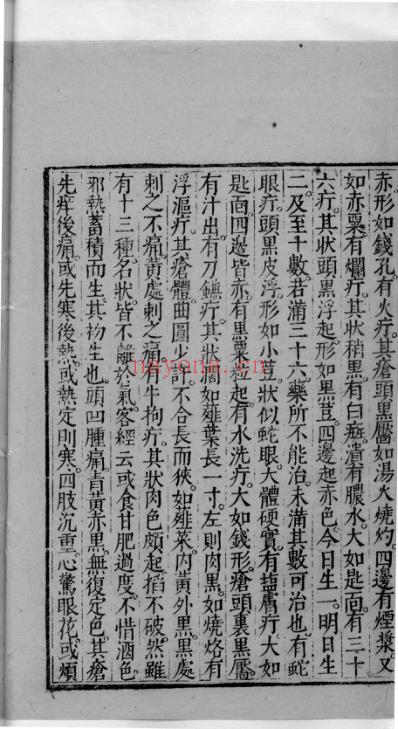 赤形如錢孔有火疔其瘡頭黑靨如湯火燒灼四邊有煙漿又
如赤粟有爛疔其狀稍黑有白瘢瀆有膿水大如匙面有三十
六疔其狀頭黑浮起形如黑荳四邊起赤色今日生一明日生
二及至十數若滿三十六藥所不能治未滿其數可治也有蛇
眼疔頭黑皮浮形如小荳狀似蛇眼大體硬實有塩膚疔大如
匙面四邊皆赤有黑粟粒起有水洗疔大如錢形瘡頭裏黑靨
有汁出有刀鐮疔其狀濶如薤葉長一寸左則肉黑如燒烙有
浮漚疔其瘡體曲圓少許不合長而俠如薤菜内黄外黑黑處
刺之不痛黄處刺之痛有牛拘疔其狀肉色頗起掐不破然雖
有十三種名狀皆不離於氣客經云或食甘肥過度不惜酒色
邪熱蓄積而生其初生也頭凹腫痛青黄赤黑無復定色其瘡
先痒後痛或先寒後熱或熱定則寒四肢沉重心驚眼花或煩